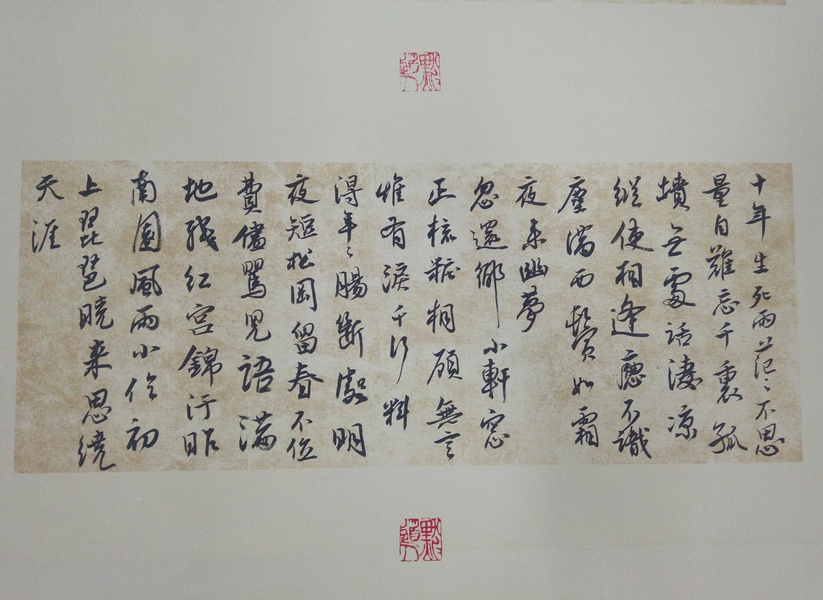 十年生死兩茫〻不思
量自難忘千裏孤
墳无處話淒凉
縱使相逢應不識
塵滿面鬢如霜
夜來幽夢
忽還鄉小軒窓
正梳粧相顧無言
惟有淚千行料
得年〻腸斷處明
夜短松岡留春不住
費儘鶯兒語滿
地殘紅宮錦汙昨
南園風雨小憐初
上琵琶曉來思繞
天涯